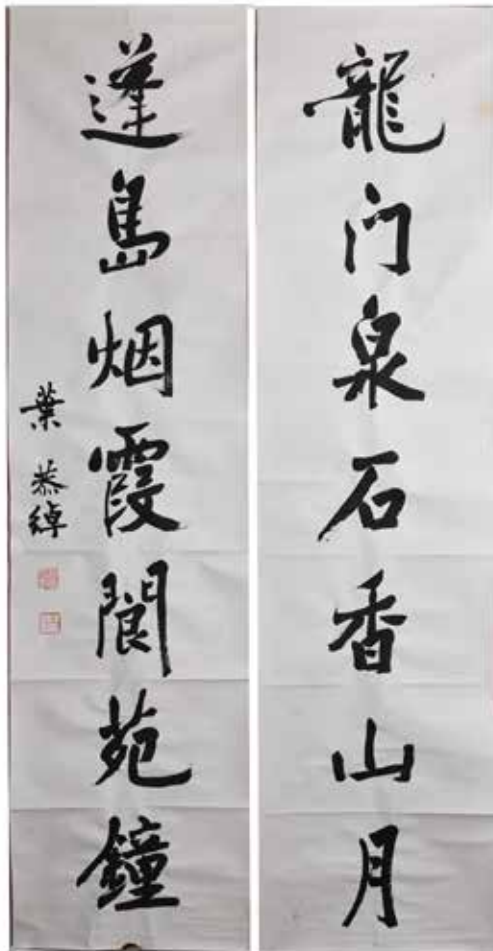 龍门泉石香山月
蓬島烟霞閬苑鐘
葉恭綽